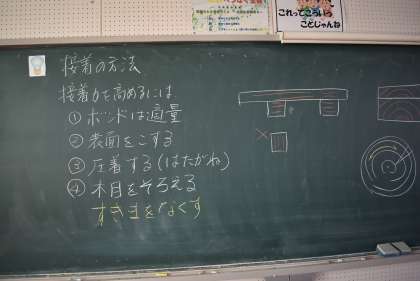 これってこういう
ことじゃんね
接着の方法
接着力を高めるには
① ボンドは適量
② 表面をこする
③ 圧着する(はたがね)
④ 木目をそろえる
すきまをなくす
×